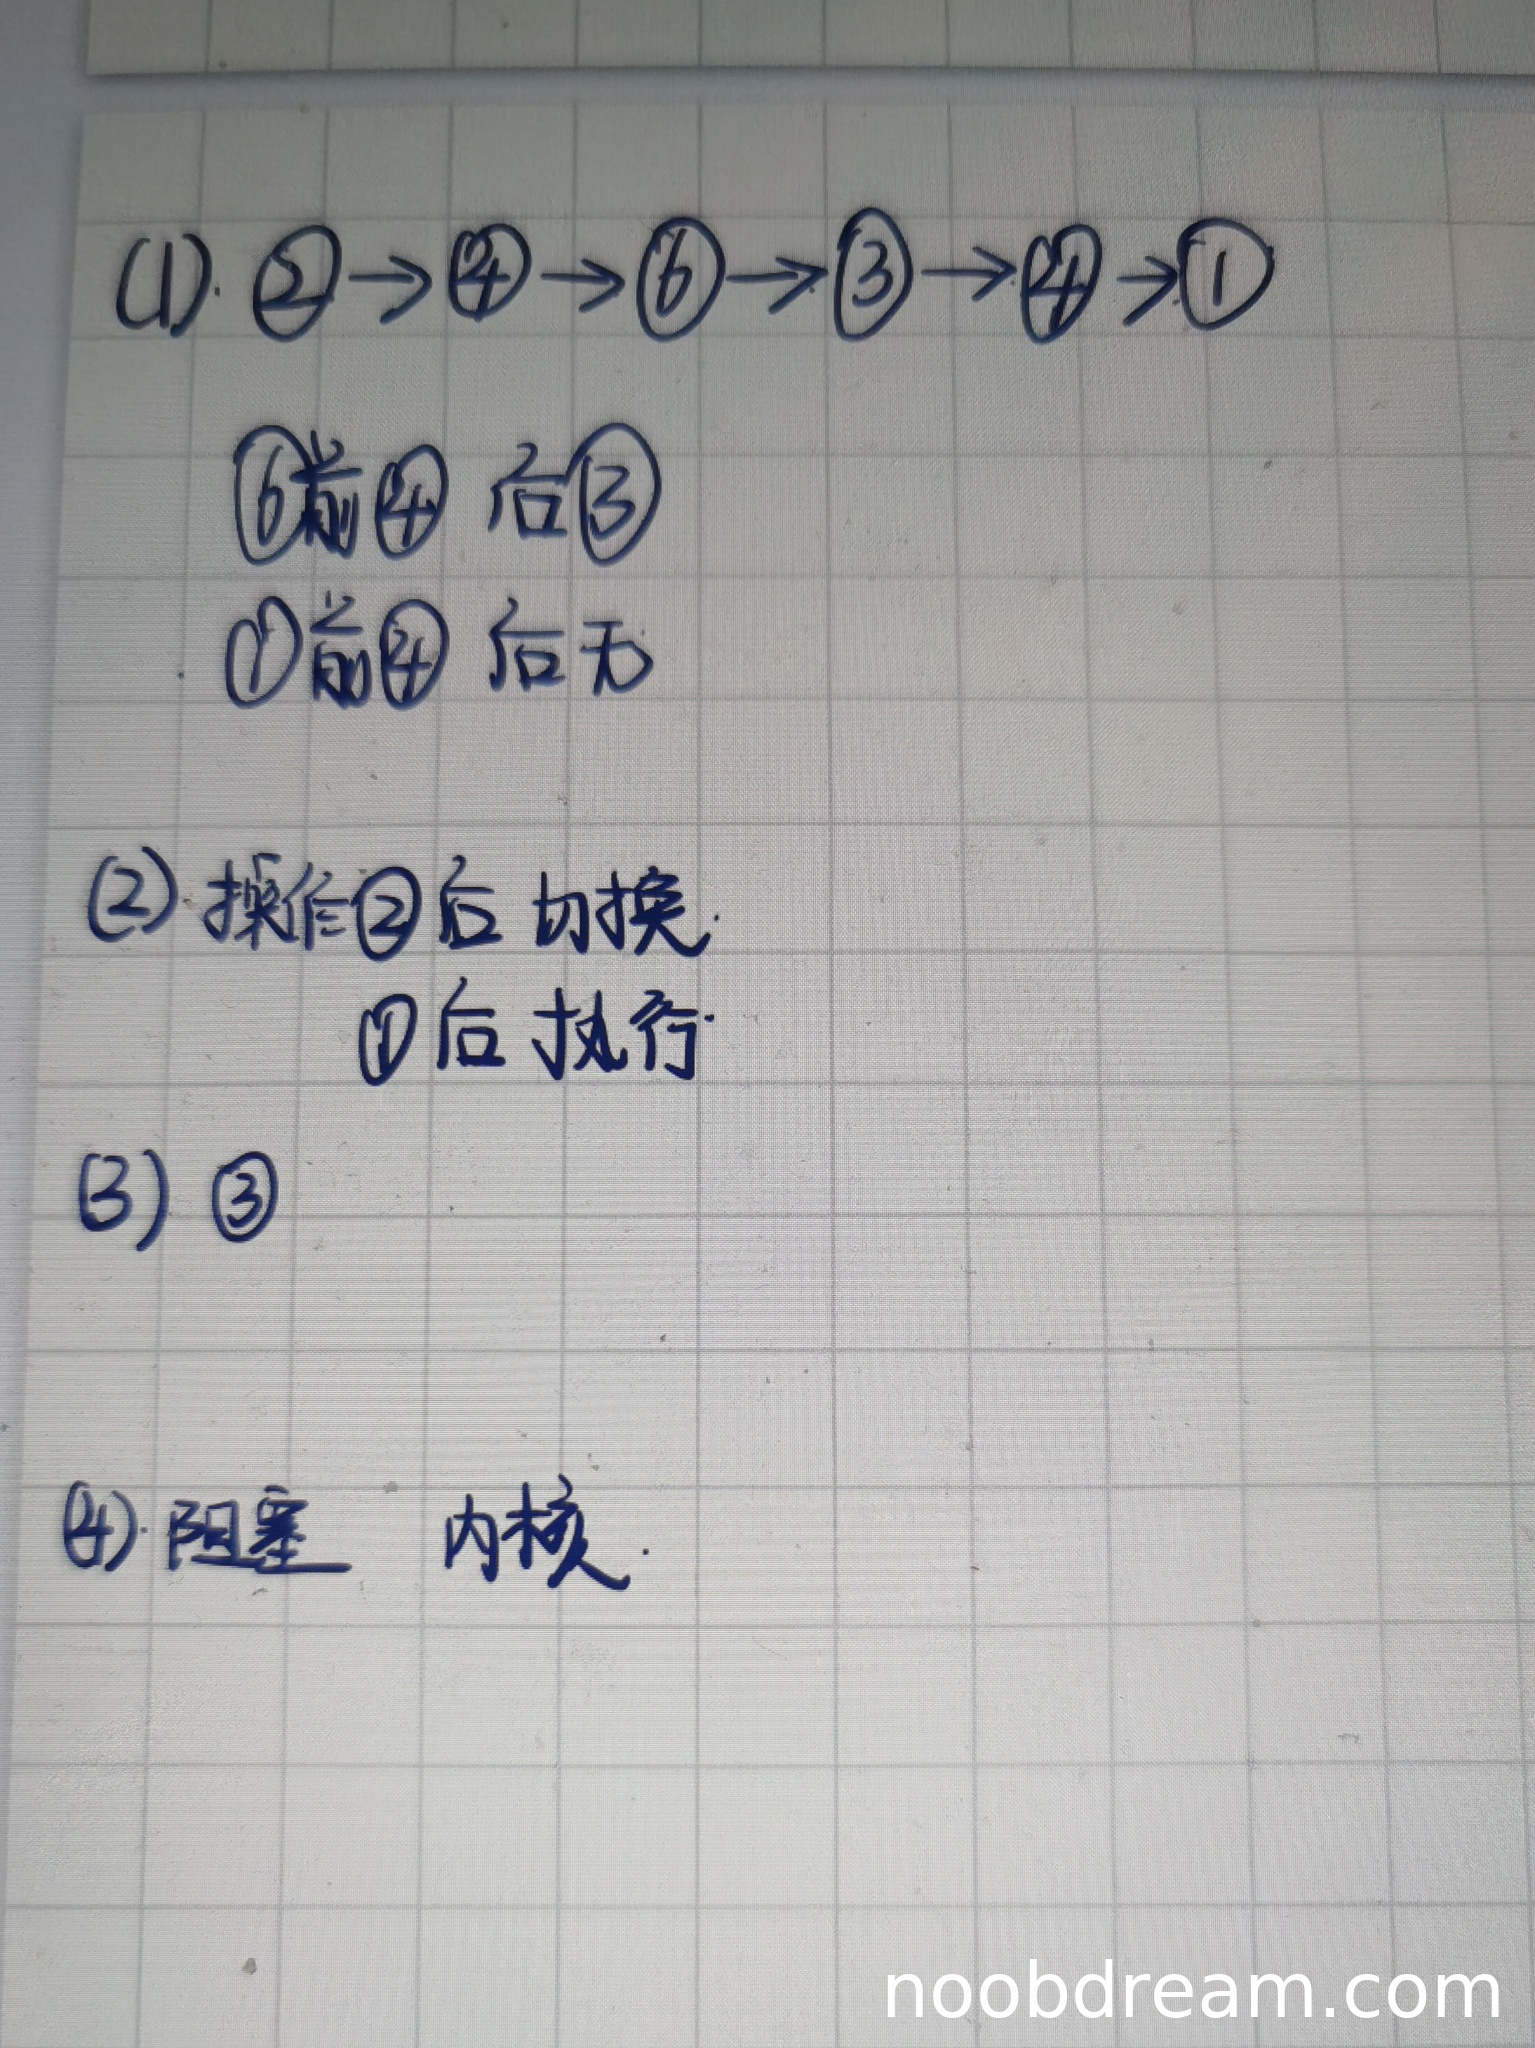 (1). ②→④→⑥→③→④→①
⑥前④ 后③
①前④ 后无
(2) 操作②后 切换.
①后 执行.
(3) ③
(4). 阻塞 内核.
noobdream.com